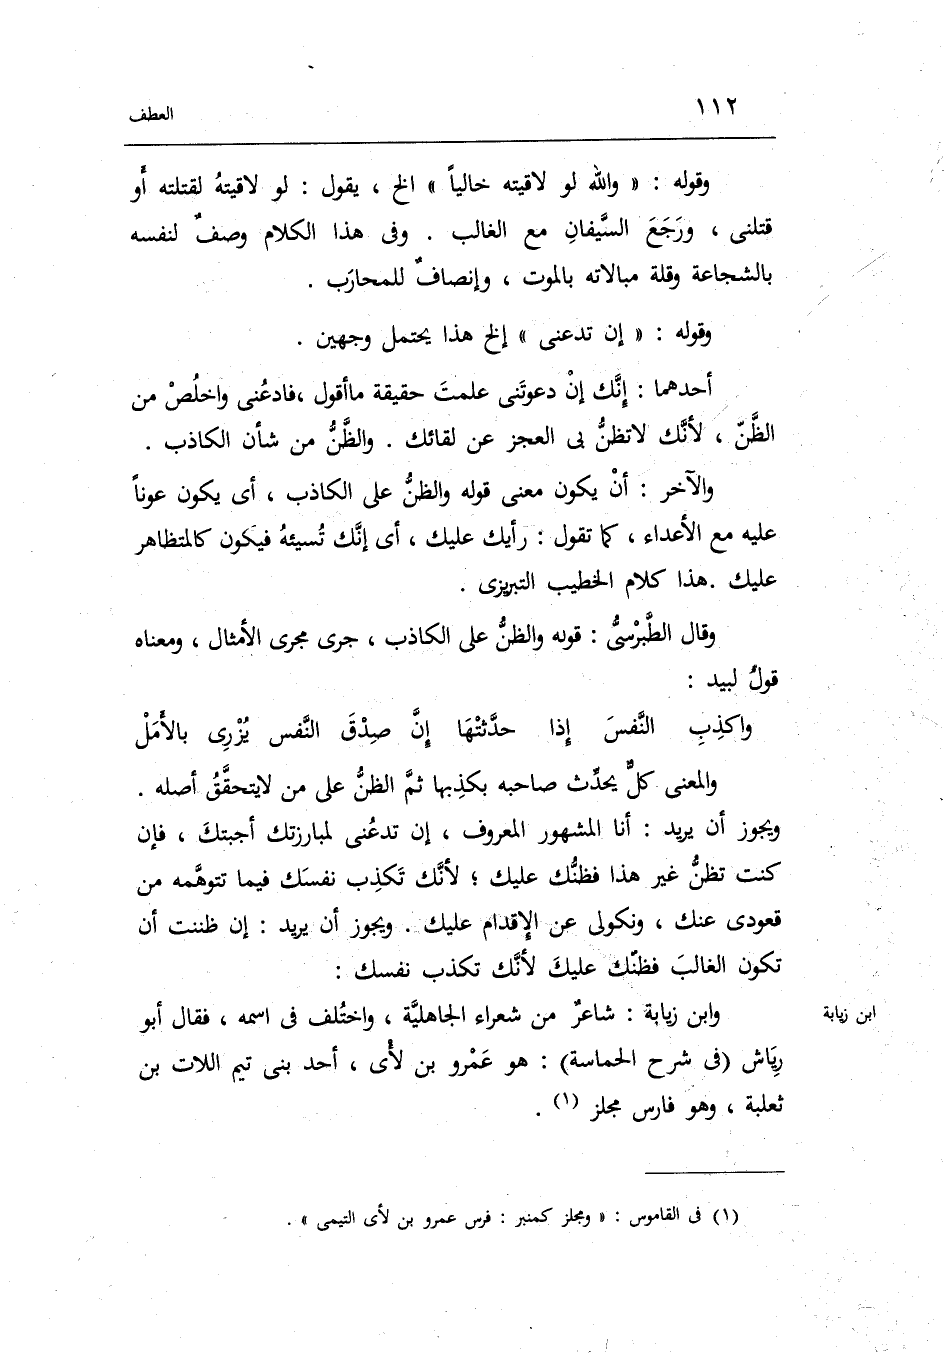 ١١٢
العطف
وقوله : « والله لو لاقيته خالياً » الخ ، يقول : لو لاقيتهُ لقتلته أَو
قتلنى ، ورَجَعَ السَّيفانِ مع الغالب . وفى هذا الكلام وصفٌ لنفسه
بالشجاعة وقلة مبالاته بالموت ، وإنصافٌ للمحارَب .
وقوله : « إن تدعنى » إلخ هذا يحتمل وجهين .
أحدهما : إِنَّك إنْ دعوتَنى علمتَ حقيقة ماأقول ،فادعُنى واخلُصْ من
الظَّنّ ، لأنَّك لاتظنُّ بى العجز عن لقائك . والظَّنُّ من شأن الكاذب .
والآخر : أنْ يكون معنى قوله والظنُّ على الكاذب ، أى يكون عوناً
عليه مع الأعداء ، كما تقول : رأيك عليك ، أى إنَّك تُسيئهُ فيكون كالمتظاهر
عليك .هذا كلام الخطيب التبريزى .
وقال الطَّبرْسىُّ : قوله والظنُّ على الكاذب ، جرى مجرى الأمثال ، ومعناه
قولُ لبيد :
واكذِبِ النَّفسَ إِذا حدَّثتْهَا إِنَّ صِدْقَ النَّفس يُزْرِى بالأَمَلْ
والمعنى كلٌّ يحدِّث صاحبه بكذِبها ثمَّ الظنُّ على من لايتحقَّقُ أصله .
ويجوز أن يريد : أنا المشهور المعروف ، إن تدعُنى لمبارزتك أجبتكَ ، فإن
كنت تظنُّ غير هذا فظنُّك عليك ؛ لأنَّك تَكذِب نفسَك فيما تتوهَّمه من
قعودى عنك ، ونكولى عن الإِقدام عليك . ويجوز أن يريد : إن ظننت أن
تكون الغالبَ فظنّك عليكَ لأنَّك تكذب نفسك :
وابن زيابة : شاعرٌ من شعراء الجاهليَّة ، واختُلف فى اسمه ، فقال أبو
ابن زيابة
رِيَاش (فى شرح الحماسة) : هو عَمْرو بن لأْى ، أحد بنى تيم اللات بن
ثعلبة ، وهو فارس مجلز (١) .
(١) فى القاموس : « ومجلز كمنبر : فرس عمرو بن لأى التيمى » .